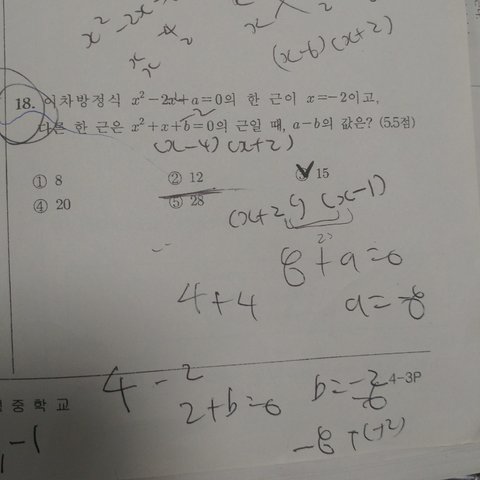 x² - 2x
x
x
x
2
x
2
(x-6)(x+2)
18. 이차방정식 x²-2x+a=0의 한 근이 x=-2이고,
다른 한 근은 x²+x+b=0의 근일 때, a-b의 값은? (5.5점)
(x-4)(x+2)
① 8 ② 12 ③ 15
④ 20 ⑤ 28
(x+2) (x-1)
8+a=0
4+4 a=-8
4-2 b=-2 4-3P
중학교 2+b=0
-8+(+2)
-1